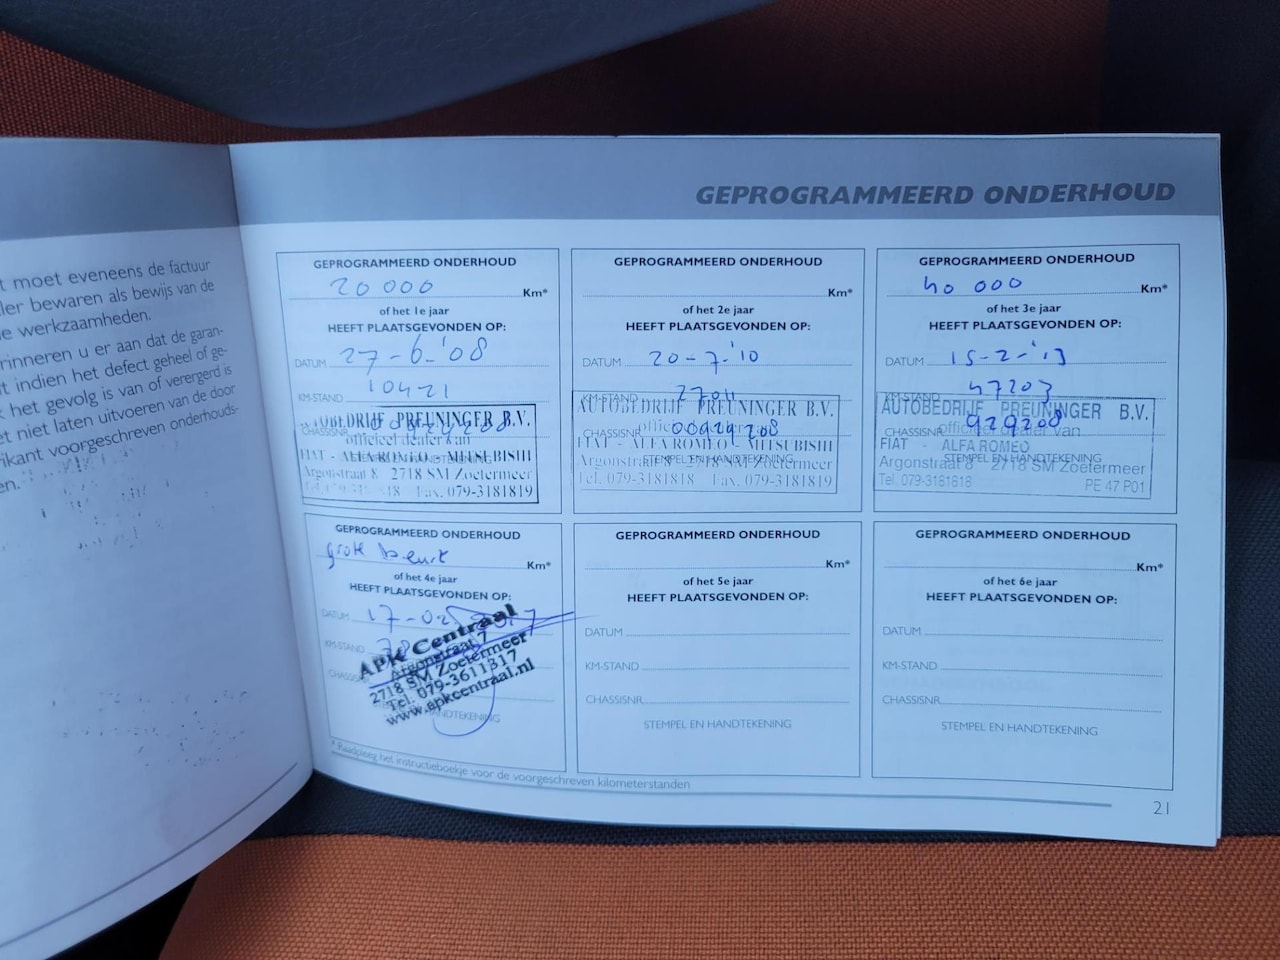 t moet eveneens de factuur
ler bewaren als bewijs van de
e werkzaamheden.
rinneren u er aan dat de garan-
t indien het defect geheel of ge-
k het gevolg is van of verergerd is
et niet laten uitvoeren van de door
ikant voorgeschreven onderhouds-
en.
GEPROGRAMMEERD ONDERHOUD
GEPROGRAMMEERD ONDERHOUD
20 000
Km*
of het 1e jaar
HEEFT PLAATSGEVONDEN OP:
DATUM 27-6-'08
KM-STAND 10421
CHASSISNR
AUTOBEDRIJF PREUNINGER B.V.
officieel dealer van
FIAT - ALFA ROMEO - MITSUBISHI
Argonstraat 8 2718 SM Zoetermeer
Fax. 079-3181819
GEPROGRAMMEERD ONDERHOUD
Km*
of het 2e jaar
HEEFT PLAATSGEVONDEN OP:
DATUM 20-7-'10
KM-STAND
AUTOBEDRIJF PREUNINGER B.V.
CHASSISNR 00929208
FIAT - ALFA ROMEO - MITSUBISHI
STEMPEL EN HANDTEKENING
Argonstraat 8 2718 SM Zoetermeer
Tel. 079-3181818 Fax. 079-3181819
GEPROGRAMMEERD ONDERHOUD
40 000
Km*
of het 3e jaar
HEEFT PLAATSGEVONDEN OP:
DATUM 15-2-'13
KM-STAND 47203
AUTOBEDRIJF PREUNINGER B.V.
CHASSISNR 929208
officieel dealer van
FIAT - ALFA ROMEO
STEMPEL EN HANDTEKENING
Argonstraat 8 2718 SM Zoetermeer
Tel. 079-3181818 PE 47 P01
GEPROGRAMMEERD ONDERHOUD
grote beurt
Km*
of het 4e jaar
HEEFT PLAATSGEVONDEN OP:
DATUM 17-02
KM-STAND
APK Centraal
Argonstraat 7
2718 SM Zoetermeer
Tel. 079-3611317
www.apkcentraal.nl
HANDTEKENING
GEPROGRAMMEERD ONDERHOUD
Km*
of het 5e jaar
HEEFT PLAATSGEVONDEN OP:
DATUM
KM-STAND
CHASSISNR
STEMPEL EN HANDTEKENING
GEPROGRAMMEERD ONDERHOUD
Km*
of het 6e jaar
HEEFT PLAATSGEVONDEN OP:
DATUM
KM-STAND
CHASSISNR
STEMPEL EN HANDTEKENING
* Raadpleeg het instructieboekje voor de voorgeschreven kilometerstanden
21